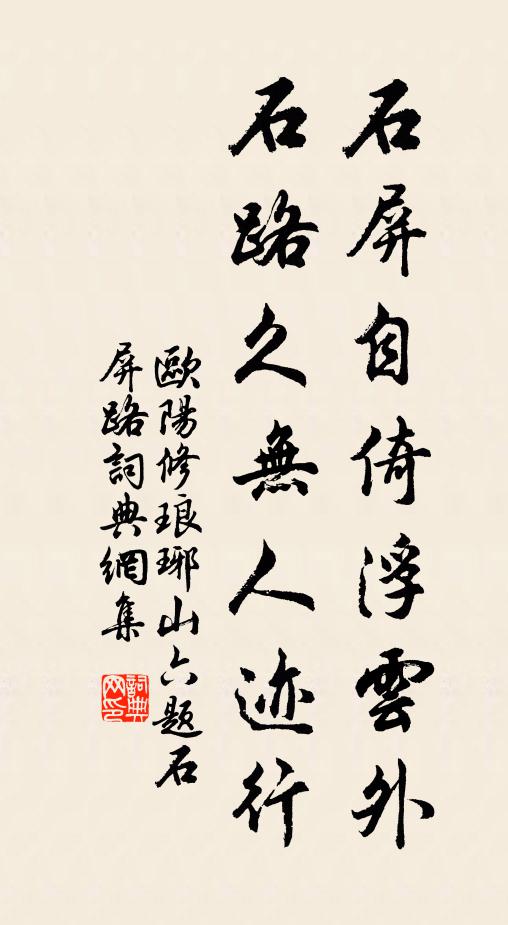 石屏自倚浮雲外
石路久無人迹行
歐陽修琅琊山六题石
屏路詞典網集
詞典网印